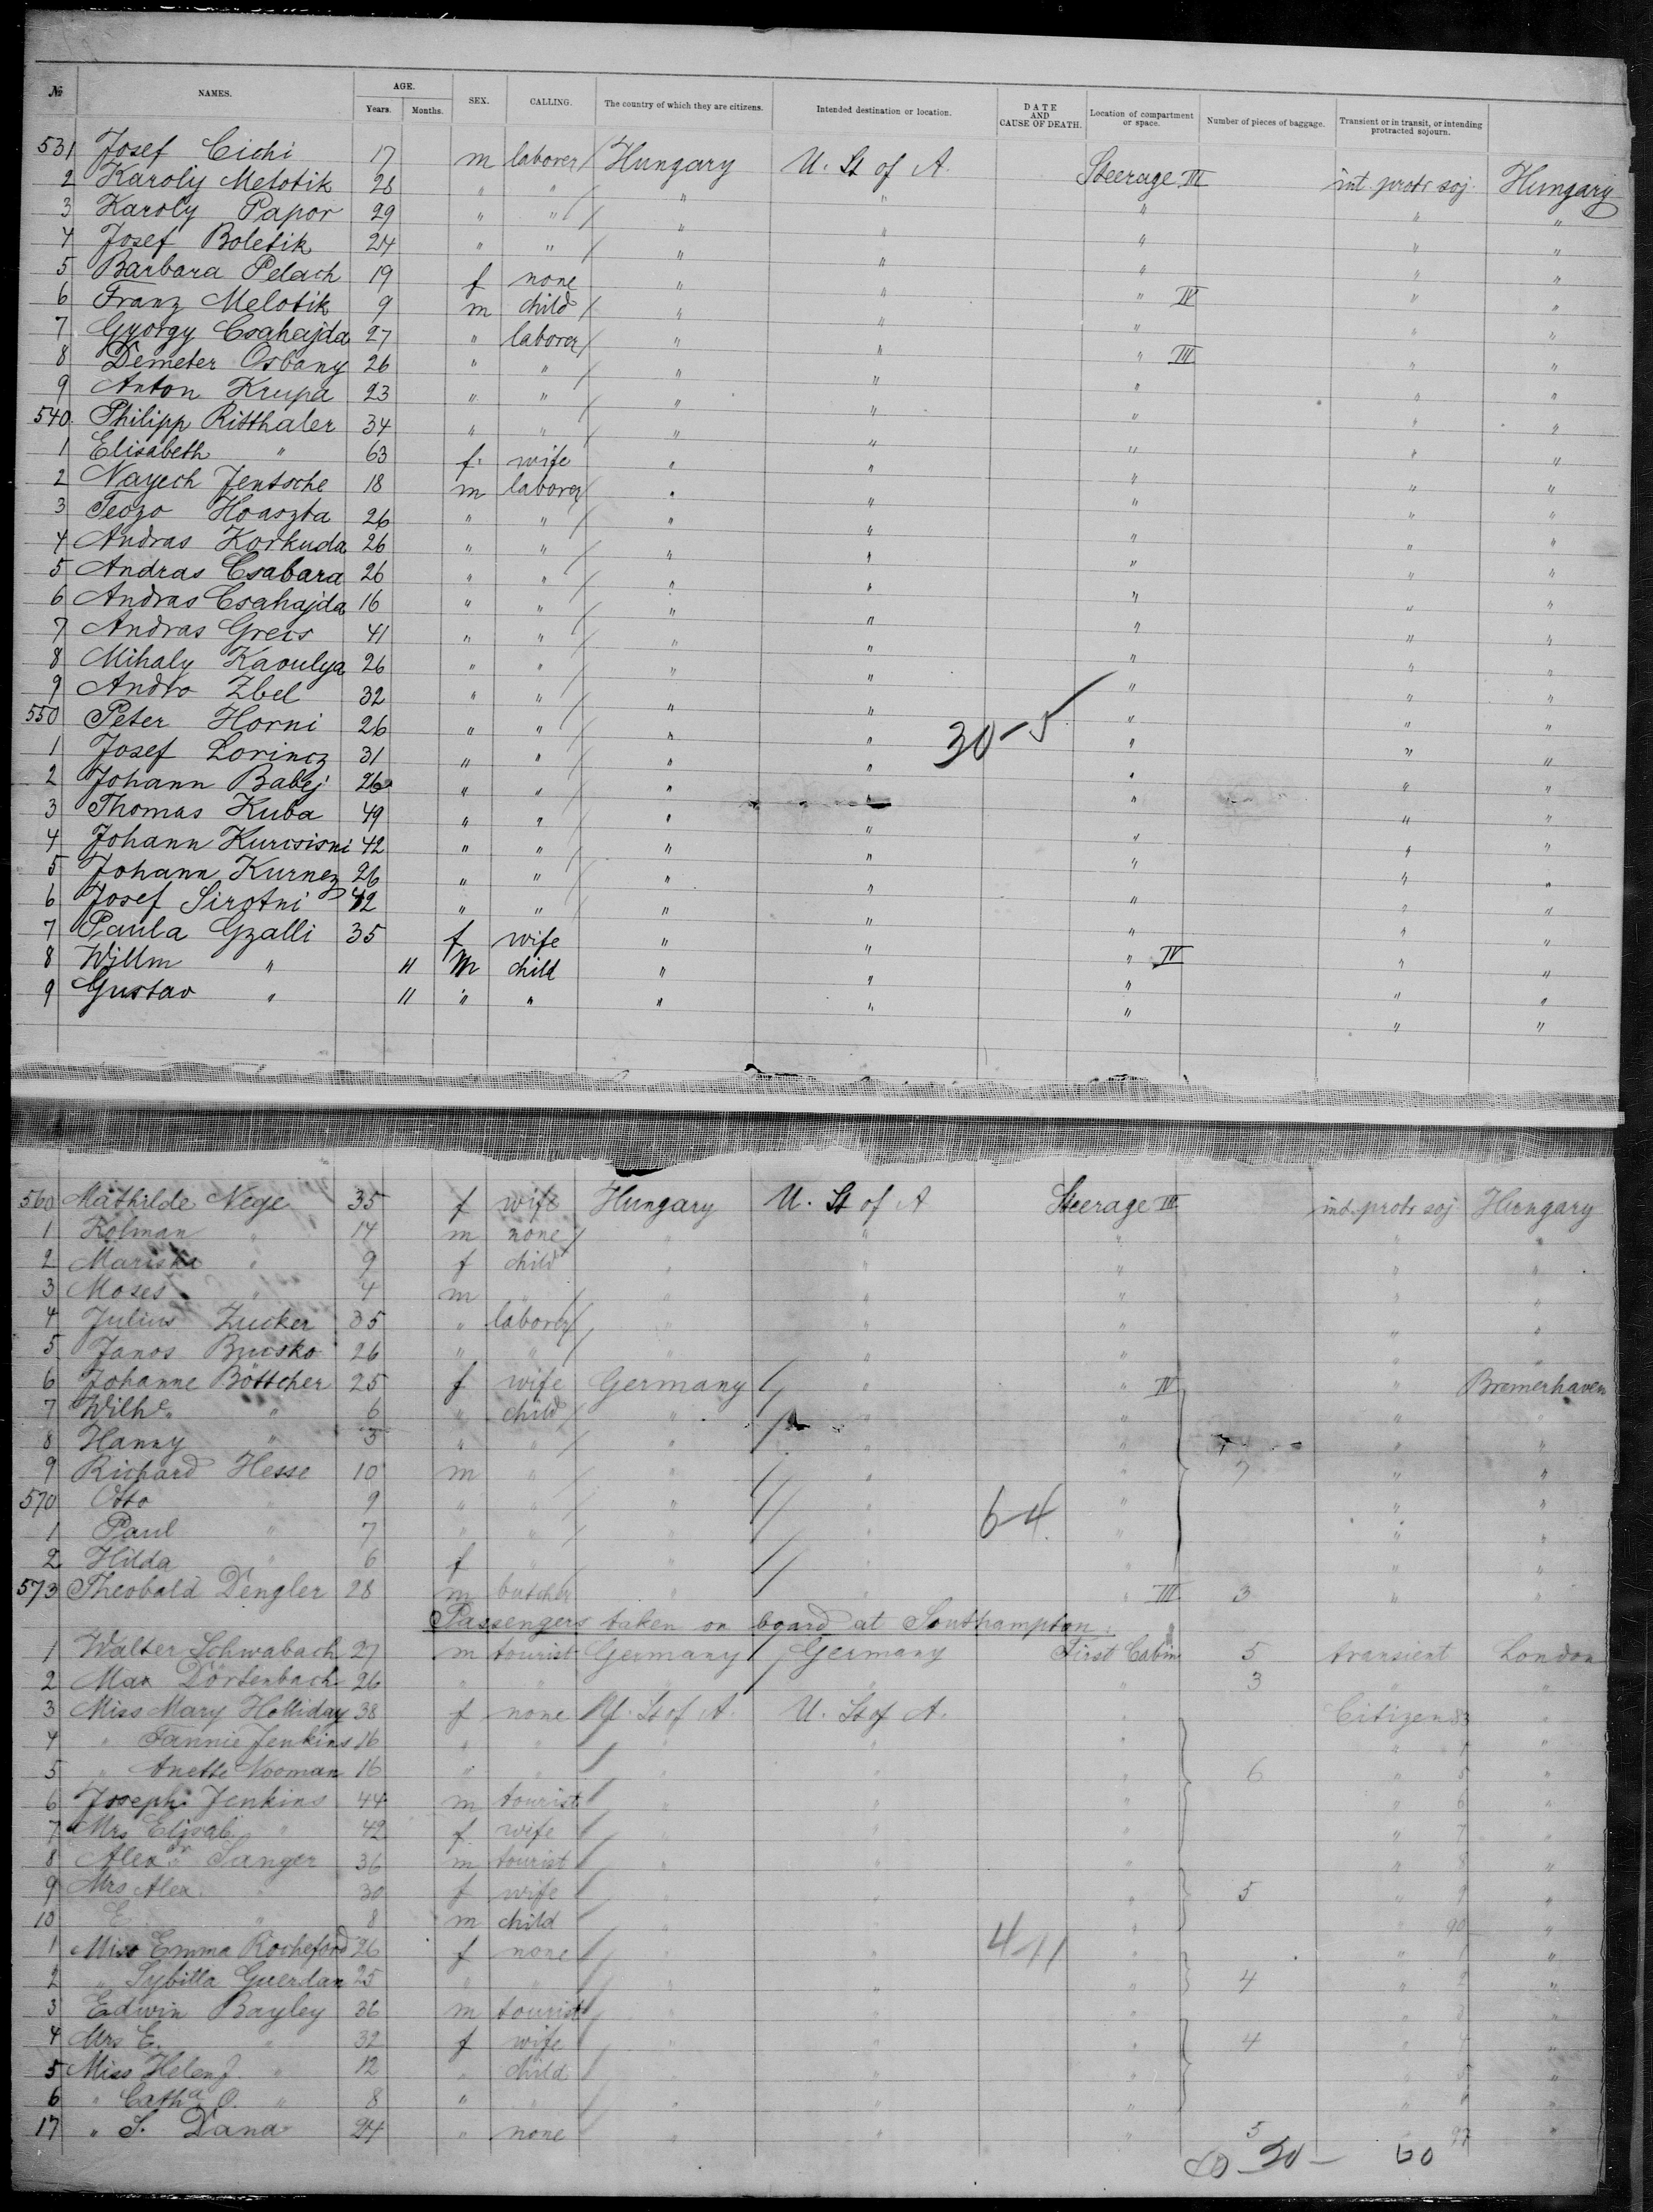 № NAMES. AGE. Years. Months. SEX. CALLING. The country of which they are citizens. Intended destination or location. DATE AND CAUSE OF DEATH. Location of compartment or space. Number of pieces of baggage. Transient or in transit, or intending protracted sojourn.
531 Josef Cichi 17 m laborer / Hungary U. St of A. Steerage III int. protr soj. Hungary
2 Karoly Melotik 28 " " / " " " " "
3 Karoly Papor 29 " " / " " " " "
4 Josef Boletik 24 " " / " " " " "
5 Barbara Pelach 19 f none " " " IV " "
6 Franz Melotik 9 m child / " " " " "
7 Gyorgy Csahajda 27 " laborer / " " " III " "
8 Demeter Osbany 26 " " / " " " " "
9 Anton Krupa 23 " " / " " " " "
540 Philipp Ritthaler 34 " " / " " " " "
1 Elisabeth " 63 f. wife " " " " "
2 Nayech Jentsche 18 m laborer / " " " " "
3 Teozo Hoaszta 26 " " / " " " " "
4 Andras Korkuda 26 " " / " " " " "
5 Andras Csabara 26 " " / " " " " "
6 Andras Csahajda 16 " " / " " " " "
7 Andras Grecs 41 " " / " " " " "
8 Mihaly Kavulya 26 " " / " " " " "
9 Andro Zbel 32 " " / " " " " "
550 Peter Horni 26 " " / " " 30-5 " " "
1 Josef Lorincz 31 " " / " " " " "
2 Johann Babej 26 " " / " " " " "
3 Thomas Kuba 49 " " / " " " " "
4 Johann Kurcsisni 42 " " / " " " " "
5 Johann Kurnez 26 " " / " " " " "
6 Josef Sirotni 42 " " / " " " " "
7 Paula Gzalli 35 f wife " " " IV " "
8 Willm " 11 m child " " " " "
9 Gustav " 11 " " " " " " "
560 Mathilde Nege 35 f wife Hungary U. St of A Steerage III int. protr soj Hungary
1 Kolman " 14 m none / " " " " "
2 Mariska " 9 f child " " " " "
3 Moses " 4 m " / " " " " "
4 Julius Zucker 35 " laborer / " " " " "
5 Janos Bucsko 26 " " / " " " " "
6 Johanne Böttcher 25 f wife Germany / " " IV " Bremerhaven
7 Wilhe. " 6 " child / " / " " " "
8 Hanny " 3 " " / " / " " " "
9 Richard Hesse 10 m " / " / " " 7 " "
570 Otto " 9 " " / " / " 6-4 " " "
1 Paul " 7 " " / " / " " " "
2 Hilda " 6 f " / " / " " " "
573 Theobald Dengler 28 m butcher " / " " III 3 " "
Passengers taken on board at Southampton.
1 Walter Schwabach 27 m tourist Germany / Germany First Cabin 5 transient London
2 Max Dörtenbach 26 " " " / " " 3 " "
3 Miss Mary Holliday 38 f none U. St of A. U. St of A. " Citizen 83 "
4 " Fannie Jenkins 16 " " / " " " "
5 " Anette Nooman 16 " " / " " " 6 " 5 "
6 Joseph Jenkins 44 m tourist / " " " " 6 "
7 Mrs Elisab. " 42 f wife / " " " " 7 "
8 Alexdr Sanger 36 m tourist / " " " " 8 "
9 Mrs Alex. " 30 f wife / " " " 5 " 9 "
10 E " 8 m child / " " " " 90 "
1 Miss Emma Rocheford 26 f none / " " 4-11 " " 1 "
2 " Sybilla Guerdan 25 " " / " " " 4 " 2 "
3 Edwin Bayley 36 m tourist / " " " " 3 "
4 Mrs E. " 32 f wife / " " " 4 " 4 "
5 Miss Helen J. " 12 " child / " " " " 5 "
6 " Catha. O. " 8 " " / " " " " 6 "
17 " S. Dana 24 " none / " " " 5 " 97 "
50 - 60